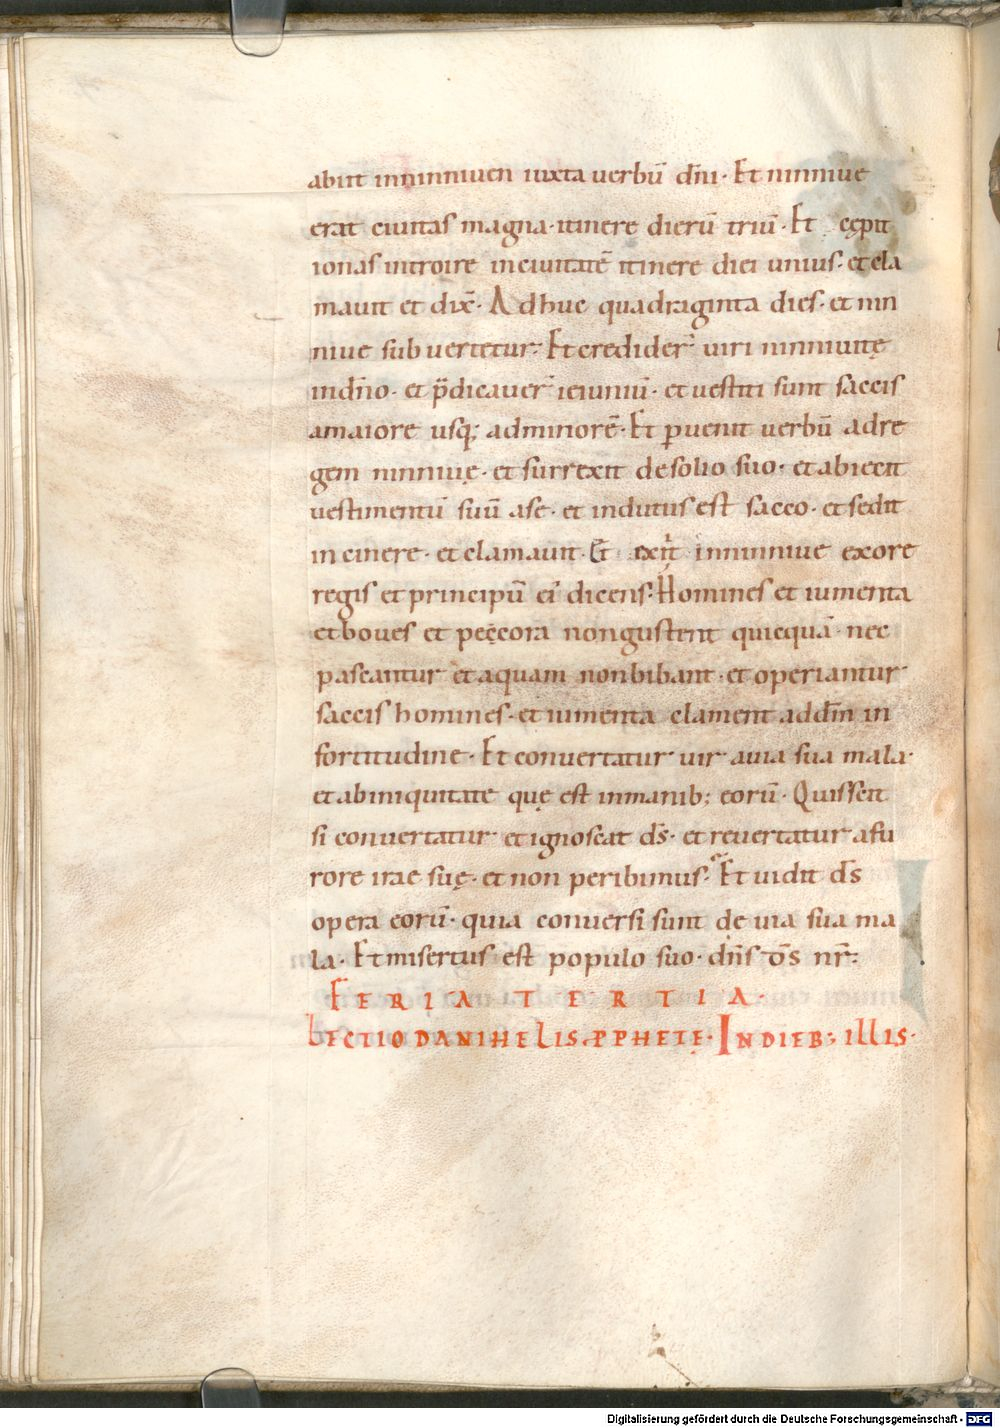 abiit inninniuen iuxta uerbū dn̄i · Et niniue
erat ciuitas magna · itinere dierū triū · Et cępit
ionas introire inciuitatē itinere diei unius · et cla
mauit et dix̄ · Adhuc quadraginta dies · et nin
niue subuertetur · Et credider̄ uiri niniuitę
indn̄o · et p̄dicauer̄ ieiuniū · et uestiti sunt saccis
amaiore usq; adminorē · Et puenit uerbū adre
gem niniuię · et surrexit desolio suo · et abiecit
uestimentū suū ase · et indutus est sacco · et sedit
in cinere · et clamauit · Et dixit inniniue exore
regis et principū ei' dicens · Homines et iumenta
et boues et peccora nongustent quicquā · nec
pascantur et aquam nonbibant · et operiantur
saccis homines · et iumenta clament addn̄m in
fortitudine · Et conuertatur uir auia sua mala ·
et abiniquitate quę est inmanib; eorū · Quisscit
si conuertatur et ignoscat ds̄ · et reuertatur afu
rore irae suę · et non peribimus · Et uidit ds̄
opera eorū · quia conuersi sunt de uia sua ma
la · Et misertus est populo suo · dn̄s ds̄ nr̄ ·
FERIA TERTIA
LECTIO DANIHELIS PPHETĘ · INDIEB; ILLIS ·
Digitalisierung gefördert durch die Deutsche Forschungsgemeinschaft - DFG